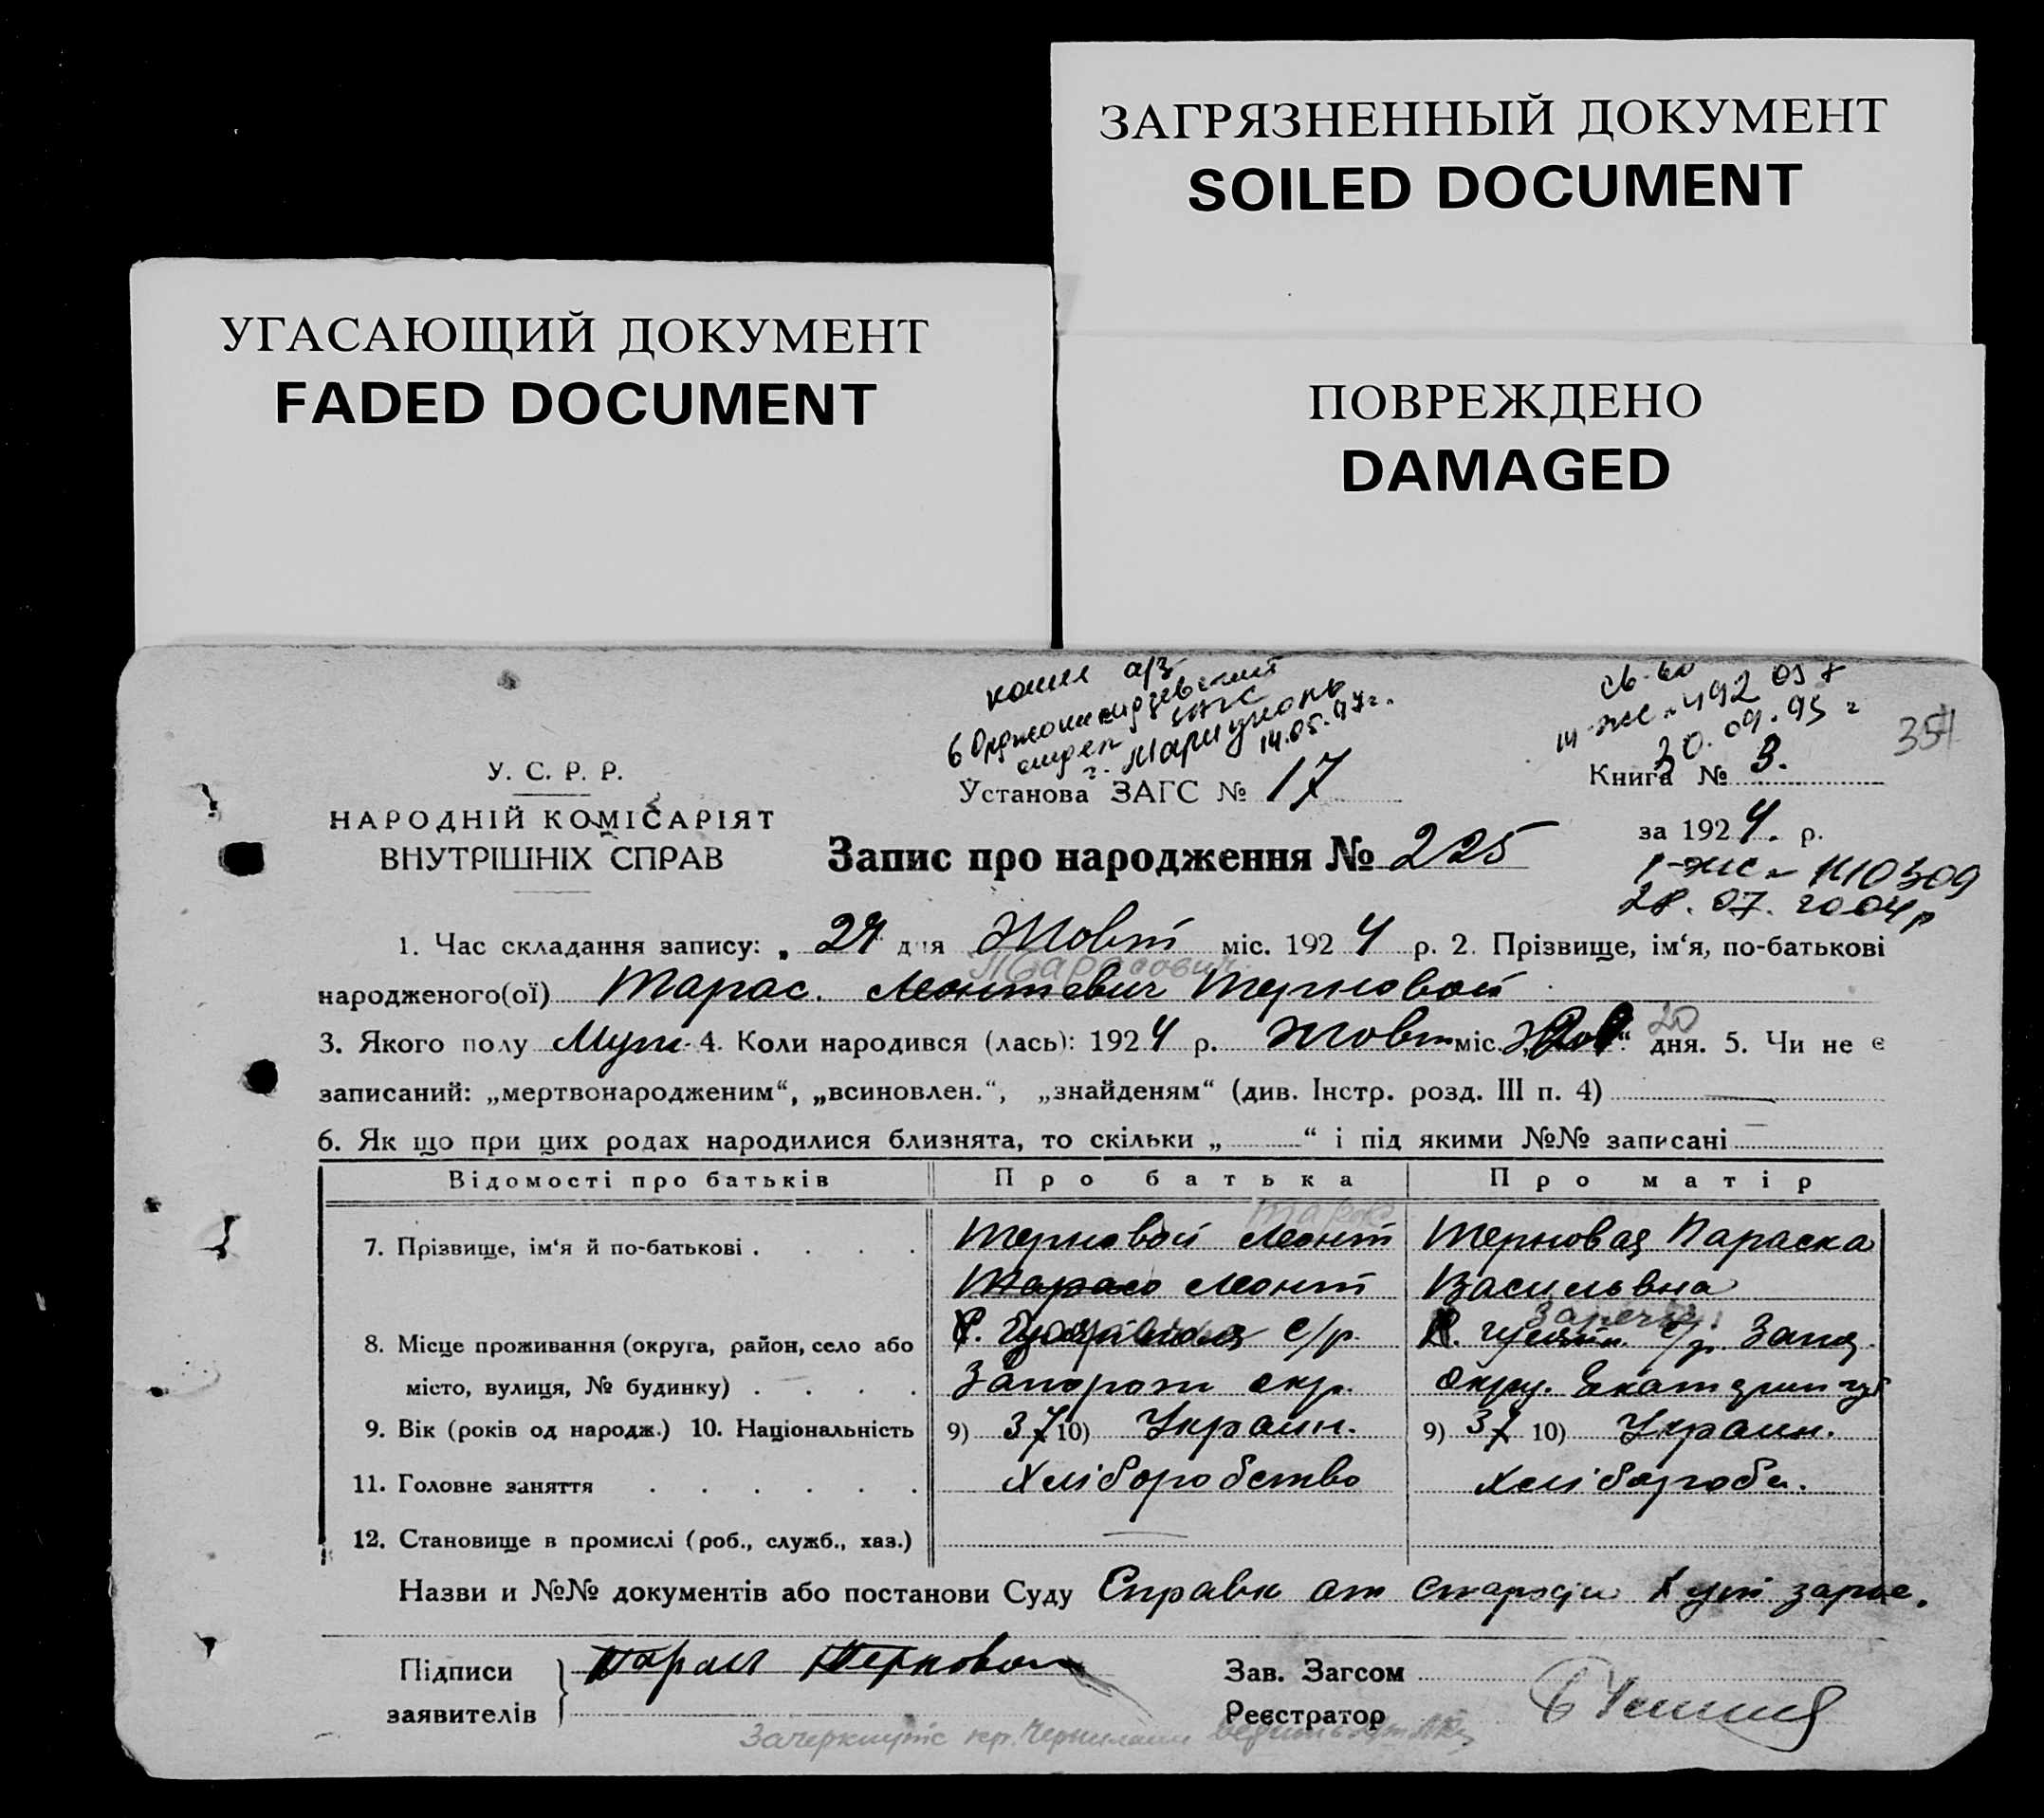 ЗАГРЯЗНЕННЫЙ ДОКУМЕНТ
SOILED DOCUMENT
УГАСАЮЩИЙ ДОКУМЕНТ
FADED DOCUMENT
ПОВРЕЖДЕНО
DAMAGED
копия а/з
в Орджоникидзевский
отдел ЗАГС
г. Мариуполь
14.05.97г.
20.09.95 г
354
У. С. Р. Р.
НАРОДНІЙ КОМІСАРІЯТ
ВНУТРІШНІХ СПРАВ
Установа ЗАГС № 17
Книга № 3.
за 1924. р.
Запис про народження № 225
28.07.2004р
1. Час складання запису: „ 24 дня Жовт міс. 1924 р. 2. Прізвище, ім‘я, по-батькові
Тарасович
народженого(ої) Тарас. Леонтевич Терновой
3. Якого полу Муж. 4. Коли народився (лась): 1924 р. Жовт міс. “ 20 дня. 5. Чи не є
записаний: „мертвонародженим“, „всиновлен.“, „знайденям“ (див. Інстр. розд. III п. 4)
6. Як що при цих родах народилися близнята, то скільки „ “ і під якими №№ записані
Відомості про батьків Про батька Про матір
7. Прізвище, ім‘я й по-батькові . . . . Терновой Леонт Терновая Параска
Тарас Леонт Васильвна
8. Місце проживання (округа, район, село або с/р. с/р. Запор.
місто, вулиця, № будинку) . . . . Запорож окр. окру.
9. Вік (років од народж.) 10. Національність 9) 37 10) Украин. 9) 37 10) Украин.
11. Головне заняття . . . . . . Хліборобство Хлібороб.
12. Становище в промислі (роб., служб., хаз.)
Назви и №№ документів або постанови Суду Справк от старости Хут
Підписи
заявителів
Тарас Терновой
Зав. Загсом
Реєстратор